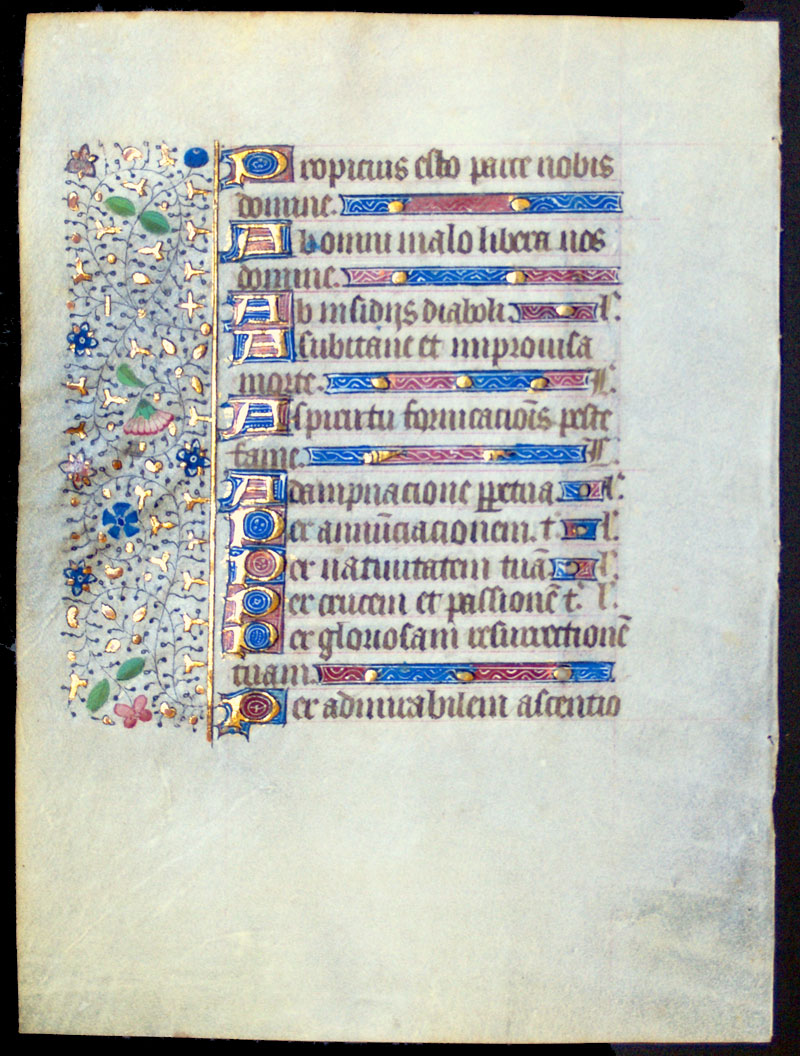 Propicius esto parce nobis
domine.
Ab omni malo libera nos
domine.
Ab insidijs diaboli. l'.
A subitane et improvisa
morte. l'.
A spiritu fornicacio͞is peste
fame. l'.
A dampnacione ꝑpetua l'.
Per annu͞ciacionem. t'. l'.
Per natiuitatem tua͞. l'.
Per crucem et passione͞ t'. l'.
Per gloriosam resurrectione͞
tuam.
Per admirabilem ascentio